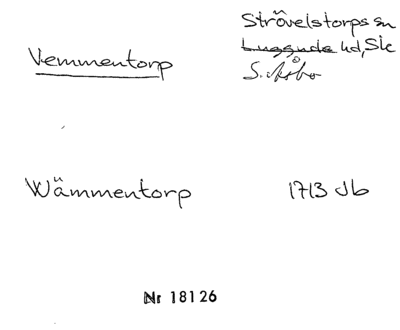 Vemmentorp
Strövelstorps sn
Luggude hd, Sk
S. Åsbo
Wämmentorp
1713 Jb
Nr 18126